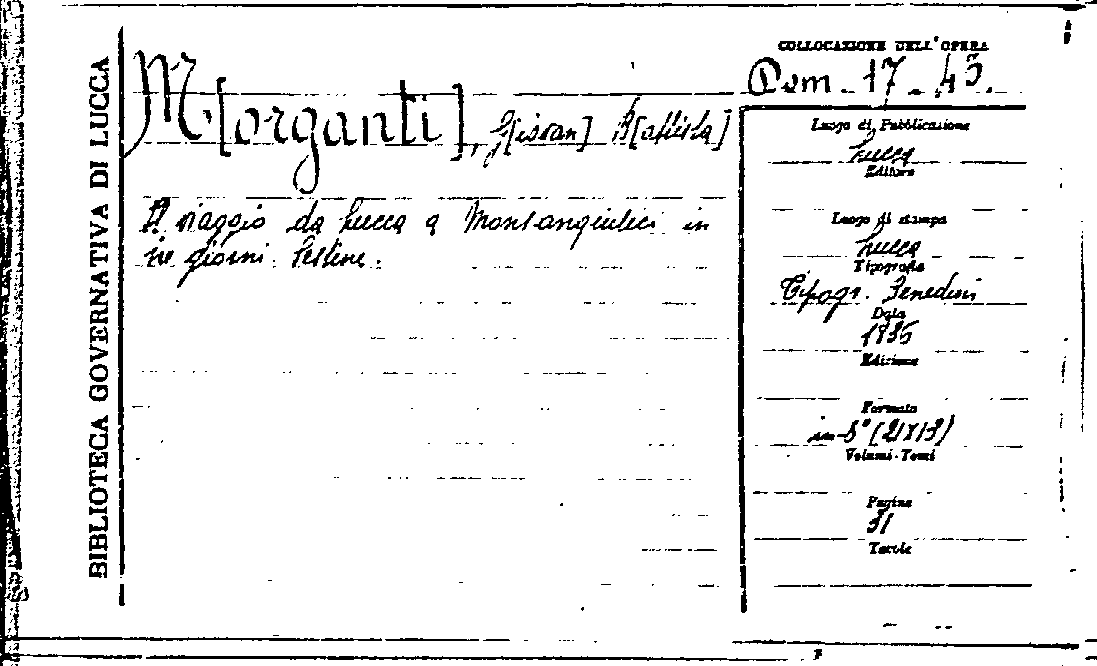 BIBLIOTECA GOVERNATIVA DI LUCCA
M[organti], G[iovan] B[attista]
Il viaggio da Lucca a Montanquilici in
tre giorni. Sestine.
COLLOCAZIONE DELL'OPERA
Dom. 17. 45.
Luogo di Pubblicazione
Lucca
Editore
Luogo di stampa
Lucca
Tipografia
Tipogr. Benedini
Data
Edizione
Formato
in-8° (21X13)
Volumi-Tomi
Pagine
31
Tavole